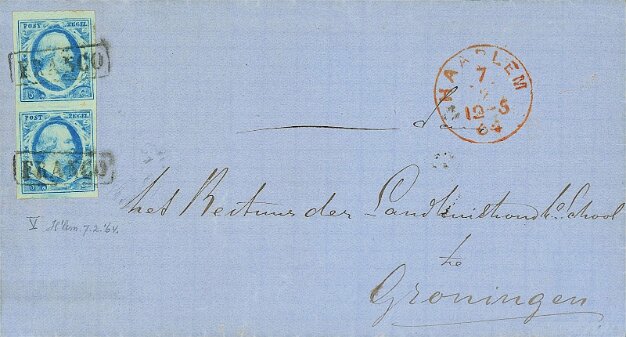 POST ZEGEL
FRANCO
POST ZEGEL
FRANCO
HAARLEM
7
12-5
64
het Bestuur der Landhuishoudk. School
te
Groningen
V H'lm. 7.2.'64.